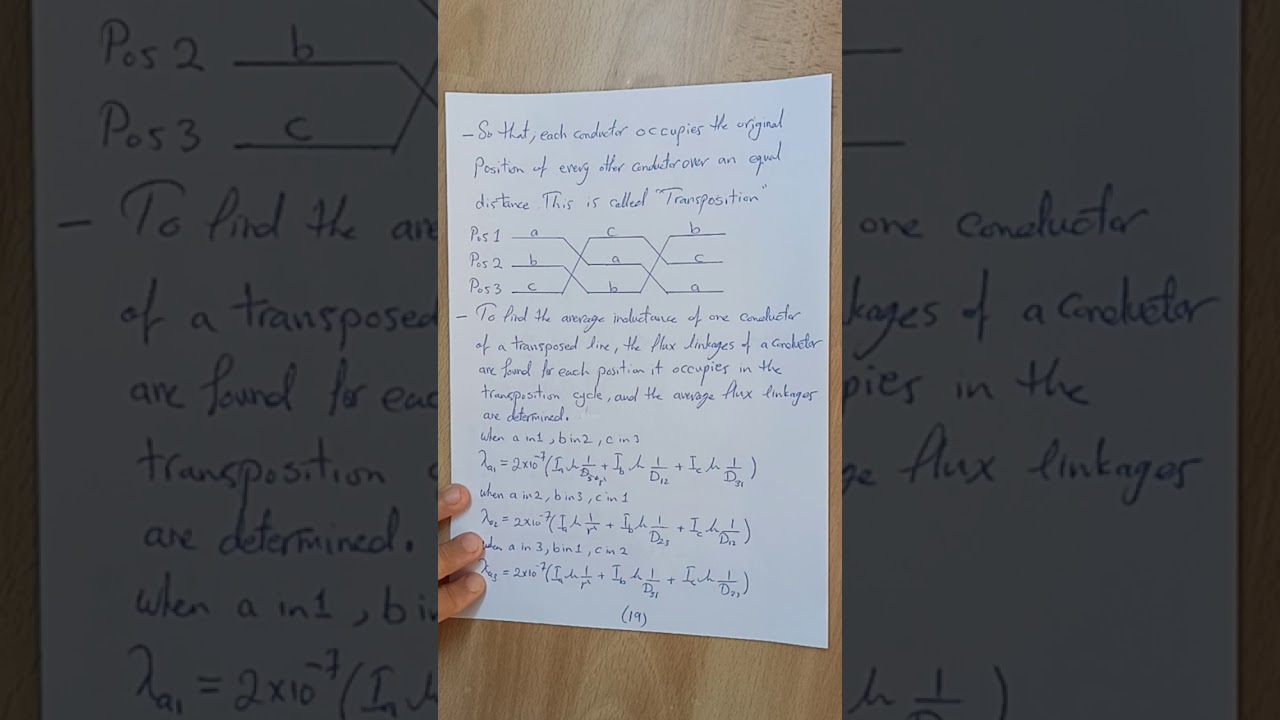 - So that, each conductor occupies the original
Position of every other conductor over an equal
distance. This is called "Transposition"
Pos 1 a c b
Pos 2 b a c
Pos 3 c b a
- To find the average inductance of one conductor
of a transposed line, the flux linkages of a conductor
are found for each position it occupies in the
transposition cycle, and the average flux linkages
are determined.
when a in 1, b in 2, c in 3
λa1 = 2×10⁻⁷ (Ia ln 1/ + Ib ln 1/D12 + Ic ln 1/D31)
when a in 2, b in 3, c in 1
λa2 = 2×10⁻⁷ (Ia ln 1/r' + Ib ln 1/D23 + Ic ln 1/D12)
when a in 3, b in 1, c in 2
λa3 = 2×10⁻⁷ (Ia ln 1/r' + Ib ln 1/D31 + Ic ln 1/D23)
(19)